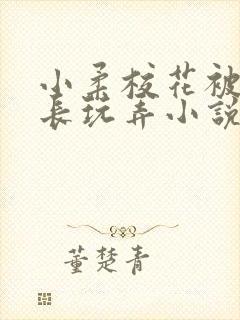 小柔校花被
長玩弄小說
董楚青